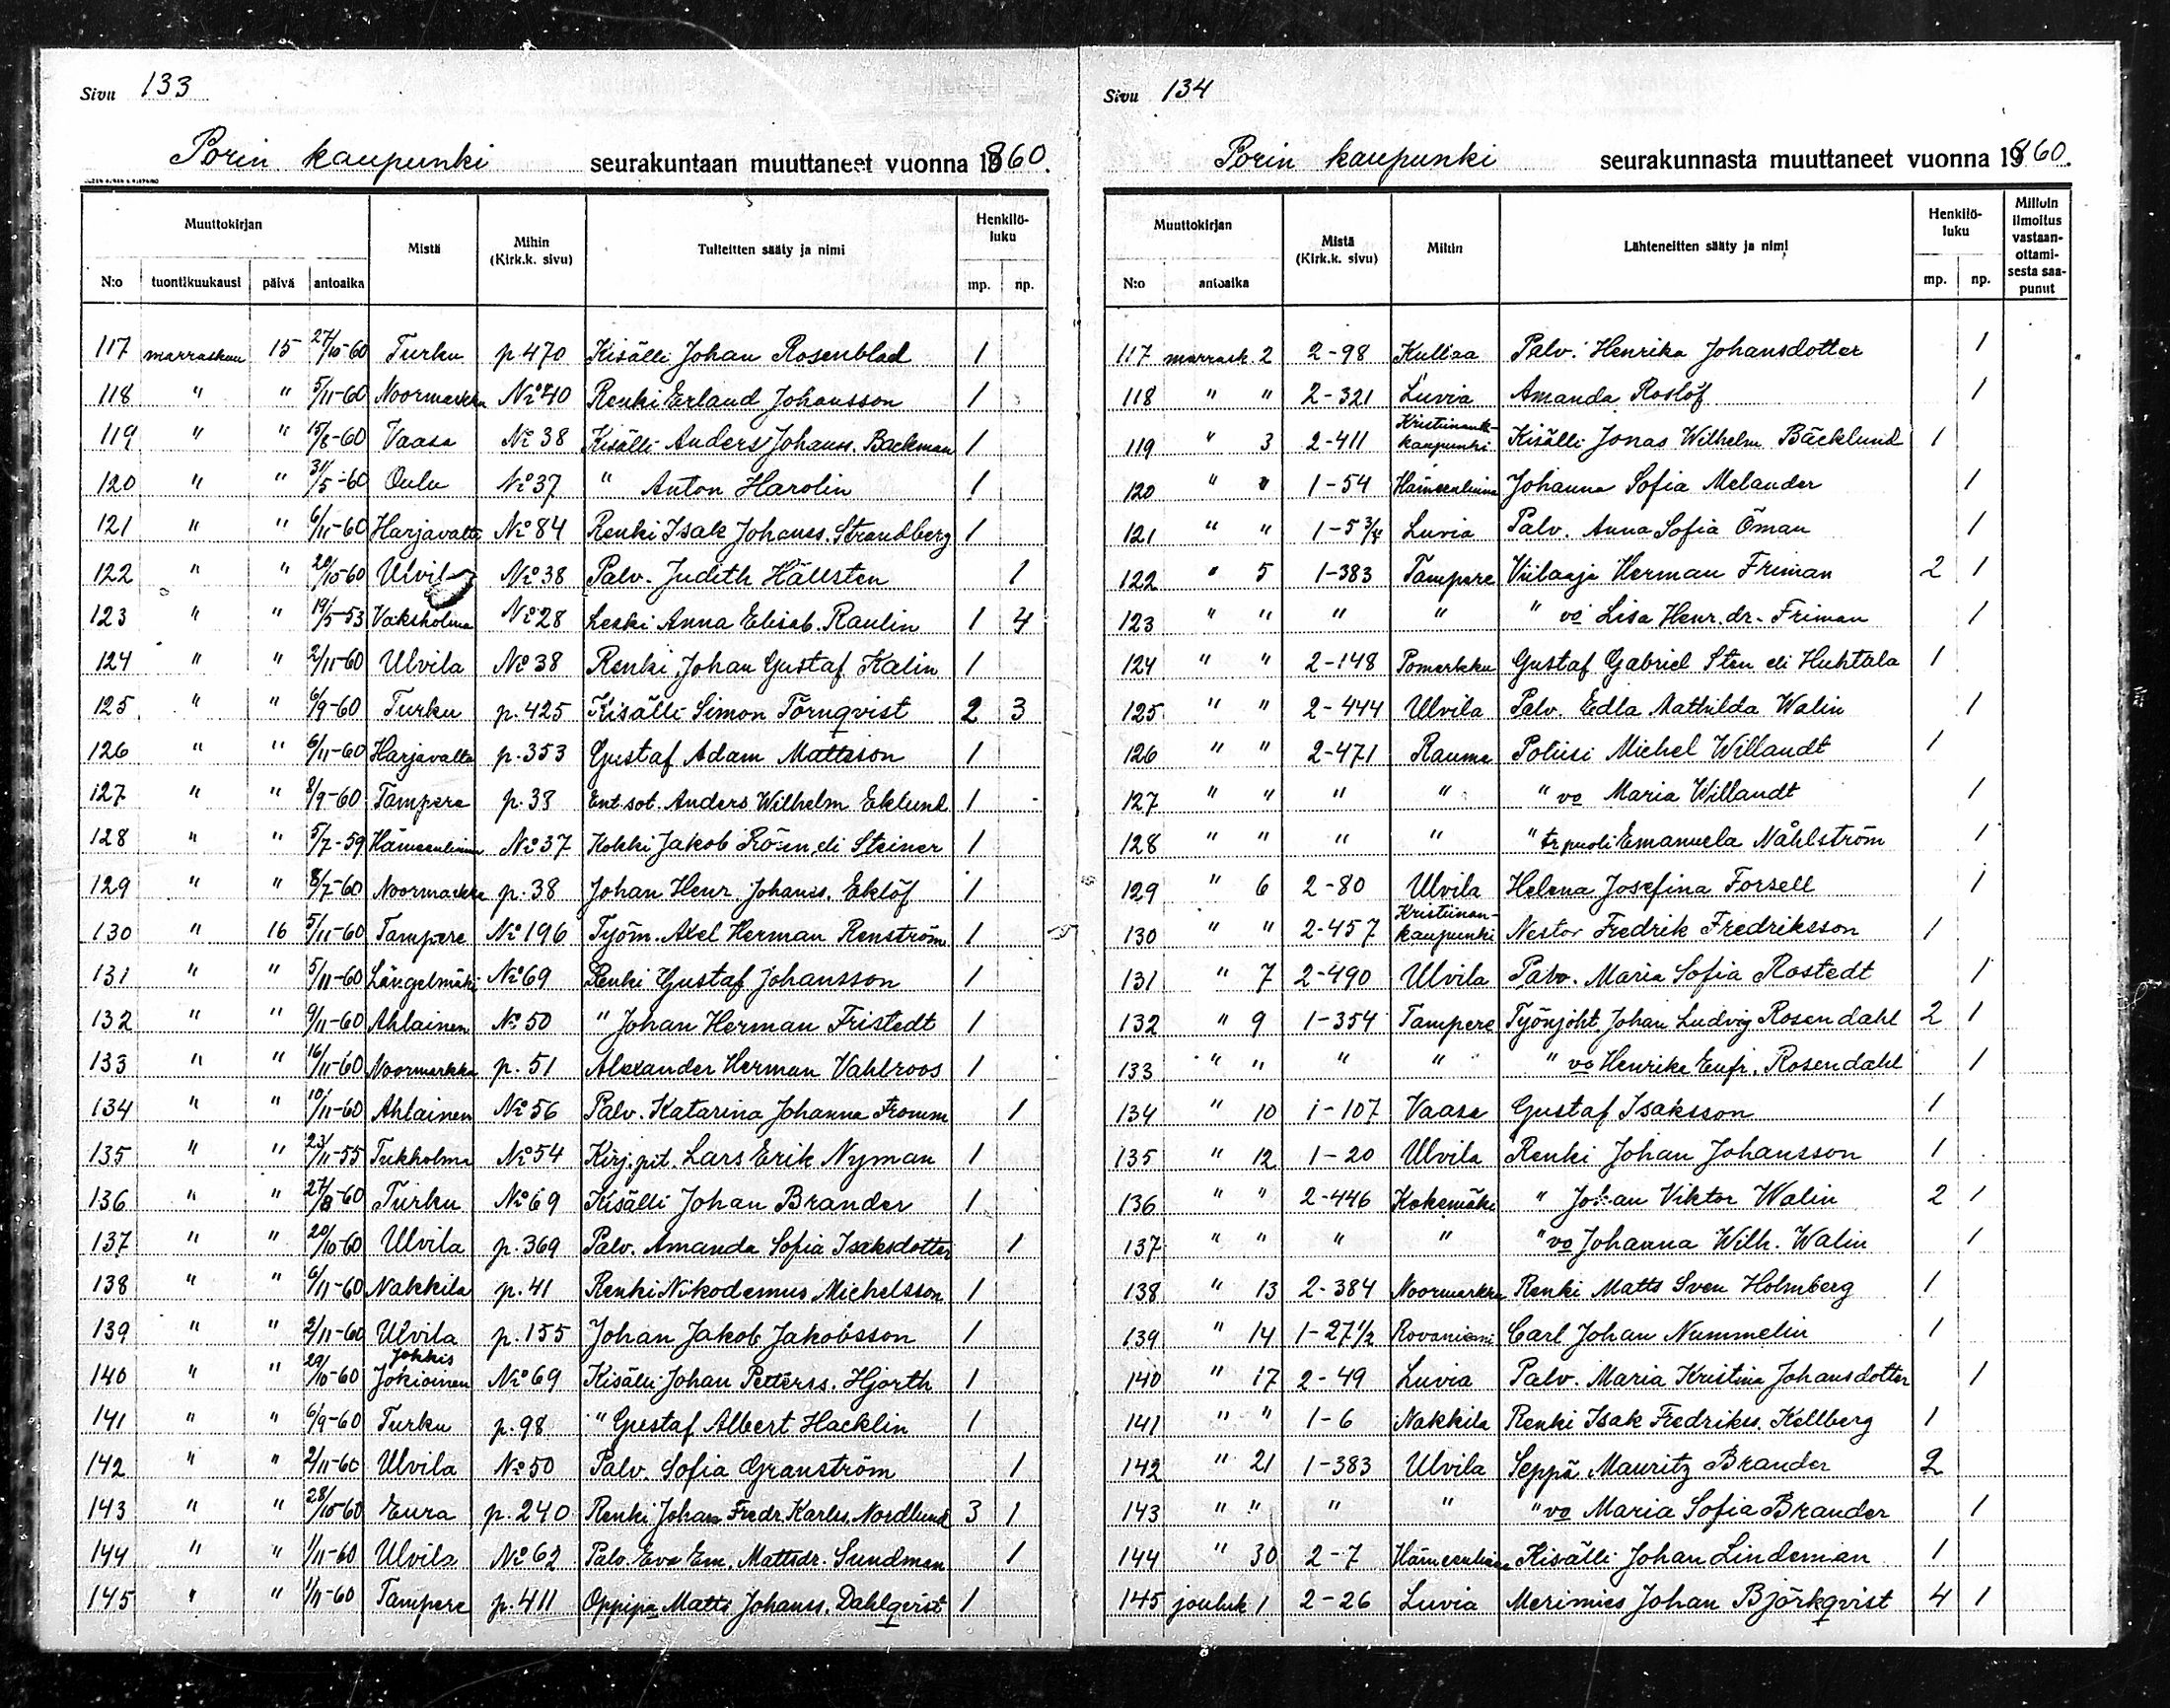 Sivu 133
Porin kaupunki seurakuntaan muuttaneet vuonna 1860.
Muuttokirjan Mistä Mihin (Kirk.k. sivu) Tulleitten sääty ja nimi Henkilö-luku
N:o tuontikuukausi päivä antoaika mp. np.
117 marraskuu 15 27/10-60 Turku p.470 Kisälli Johan Rosenblad 1
118 " " 5/11-60 Noormarkku No 40 Renki Erland Johansson 1
119 " " 15/6-60 Vaasa No 38 Kisälli Anders Johanss. Backman 1
120 " " 31/5-60 Oulu No 37 " Anton Harolin 1
121 " " 6/11-60 Harjavalta No 84 Renki Isak Johanss. Strandberg 1
122 " " 20/10-60 Ulvila No 38 Palv. Judith Hällsten 1
123 " " 19/5-53 Vaksholma No 28 Leski Anna Elisab. Raulin 1 4
124 " " 2/11-60 Ulvila No 38 Renki Johan Gustaf Kalin 1
125 " " 6/9-60 Turku p.425 Kisälli Simon Törnqvist 2 3
126 " " 6/11-60 Harjavalta p.353 Gustaf Adam Mattsson 1
127 " " 8/9-60 Tampere p.38 Ent.sot. Anders Wilhelm Eklund 1
128 " " 5/7-59 Hämeenlinna No 37 Kokki Jakob Rosen eli Steiner 1
129 " " 8/7-60 Noormarkku p.38 Johan Henr. Johanss. Eklöf 1
130 " 16 5/11-60 Tampere No 196 Työm. Axel Herman Renström 1
131 " " 5/11-60 Längelmäki No 69 Renki Gustaf Johansson 1
132 " " 9/11-60 Ahlainen No 50 " Johan Herman Fristedt 1
133 " " 16/11-60 Noormarkku p.51 Alexander Herman Vahlroos 1
134 " " 10/11-60 Ahlainen No 56 Palv. Katarina Johanna Fromm 1
135 " " 23/11-55 Tukholma No 54 Kirj.pit. Lars Erik Nyman 1
136 " " 27/8-60 Turku No 69 Kisälli Johan Brander 1
137 " " 20/10-60 Ulvila p.369 Palv. Amanda Sofia Isaksdotter 1
138 " " 6/11-60 Nakkila p.41 Renki Nikodemus Michelsson 1
139 " " 2/11-60 Ulvila p.155 Johan Jakob Jakobsson 1
Jokkis
140 " " 29/10-60 Jokioinen No 69 Kisälli Johan Petterss. Hjorth 1
141 " " 6/9-60 Turku p.98 " Gustaf Albert Hacklin 1
142 " " 2/11-60 Ulvila No 50 Palv. Sofia Granström 1
143 " " 28/10-60 Eura p.240 Renki Johan Fredr. Karlss. Nordlund 3 1
144 " " 1/11-60 Ulvila No 62 Palv. Eva Em. Mattsdr. Sundman 1
145 " " 1/11-60 Tampere p.411 Oppipa Matts Johanss. Dahlqvist 1
Sivu 134
Porin kaupunki seurakunnasta muuttaneet vuonna 1860.
Muuttokirjan Mistä (Kirk.k. sivu) Mihin Lähteneitten sääty ja nimi Henkilö-luku Milloin ilmoitus vastaan-ottami-sesta saa-punut
N:o antoaika mp. np.
117 marrask. 2 2-98 Kullaa Palv. Henrika Johansdotter 1
118 " " 2-321 Luvia Amanda Roslöf 1
119 " 3 2-411 Kristiinan-kaupunki Kisälli Jonas Wilhelm Bäcklund 1
120 " " 1-54 Hämeenlinna Johanna Sofia Melander 1
121 " " 1-5 3/4 Luvia Palv. Anna Sofia Öman 1
122 " 5 1-383 Tampere Viilaaja Herman Friman 2 1
123 " " " " " vo Lisa Henr. dr. Friman 1
124 " " 2-148 Pomarkku Gustaf Gabriel Sten eli Huhtala 1
125 " " 2-444 Ulvila Palv. Edla Mathilda Walin 1
126 " " 2-471 Rauma Poliisi Michel Willandt 1
127 " " " " " vo Maria Willandt 1
128 " " " " " tr puoli Emanuela Måhlström 1
129 " 6 2-80 Ulvila Helena Josefina Forsell 1
130 " " 2-457 Kristiinan-kaupunki Nestor Fredrik Fredriksson 1
131 " 7 2-490 Ulvila Palv. Maria Sofia Rostedt 1
132 " 9 1-354 Tampere Työnjoht. Johan Ludvig Rosendahl 2 1
133 " " " " " vo Henrika Eufr. Rosendahl 1
134 " 10 1-107 Vaasa Gustaf Isaksson 1
135 " 12 1-20 Ulvila Renki Johan Johansson 1
136 " " 2-446 Kokemäki " Johan Viktor Walin 2 1
137 " " " " " vo Johanna Wilh. Walin 1
138 " 13 2-384 Noormarkku Renki Matts Sven Holmberg 1
139 " 14 1-27 1/2 Rovaniemi Carl Johan Nummelin 1
140 " 17 2-49 Luvia Palv. Maria Kristina Johansdotter 1
141 " " 1-6 Nakkila Renki Isak Fredrikss. Kellberg 1
142 " 21 1-383 Ulvila Seppä Mauritz Brander 2
143 " " " " " vo Maria Sofia Brander 1
144 " 30 2-7 Hämeenlinna Kisälli Johan Lindeman 1
145 jouluk 1 2-26 Luvia Merimies Johan Björkqvist 4 1